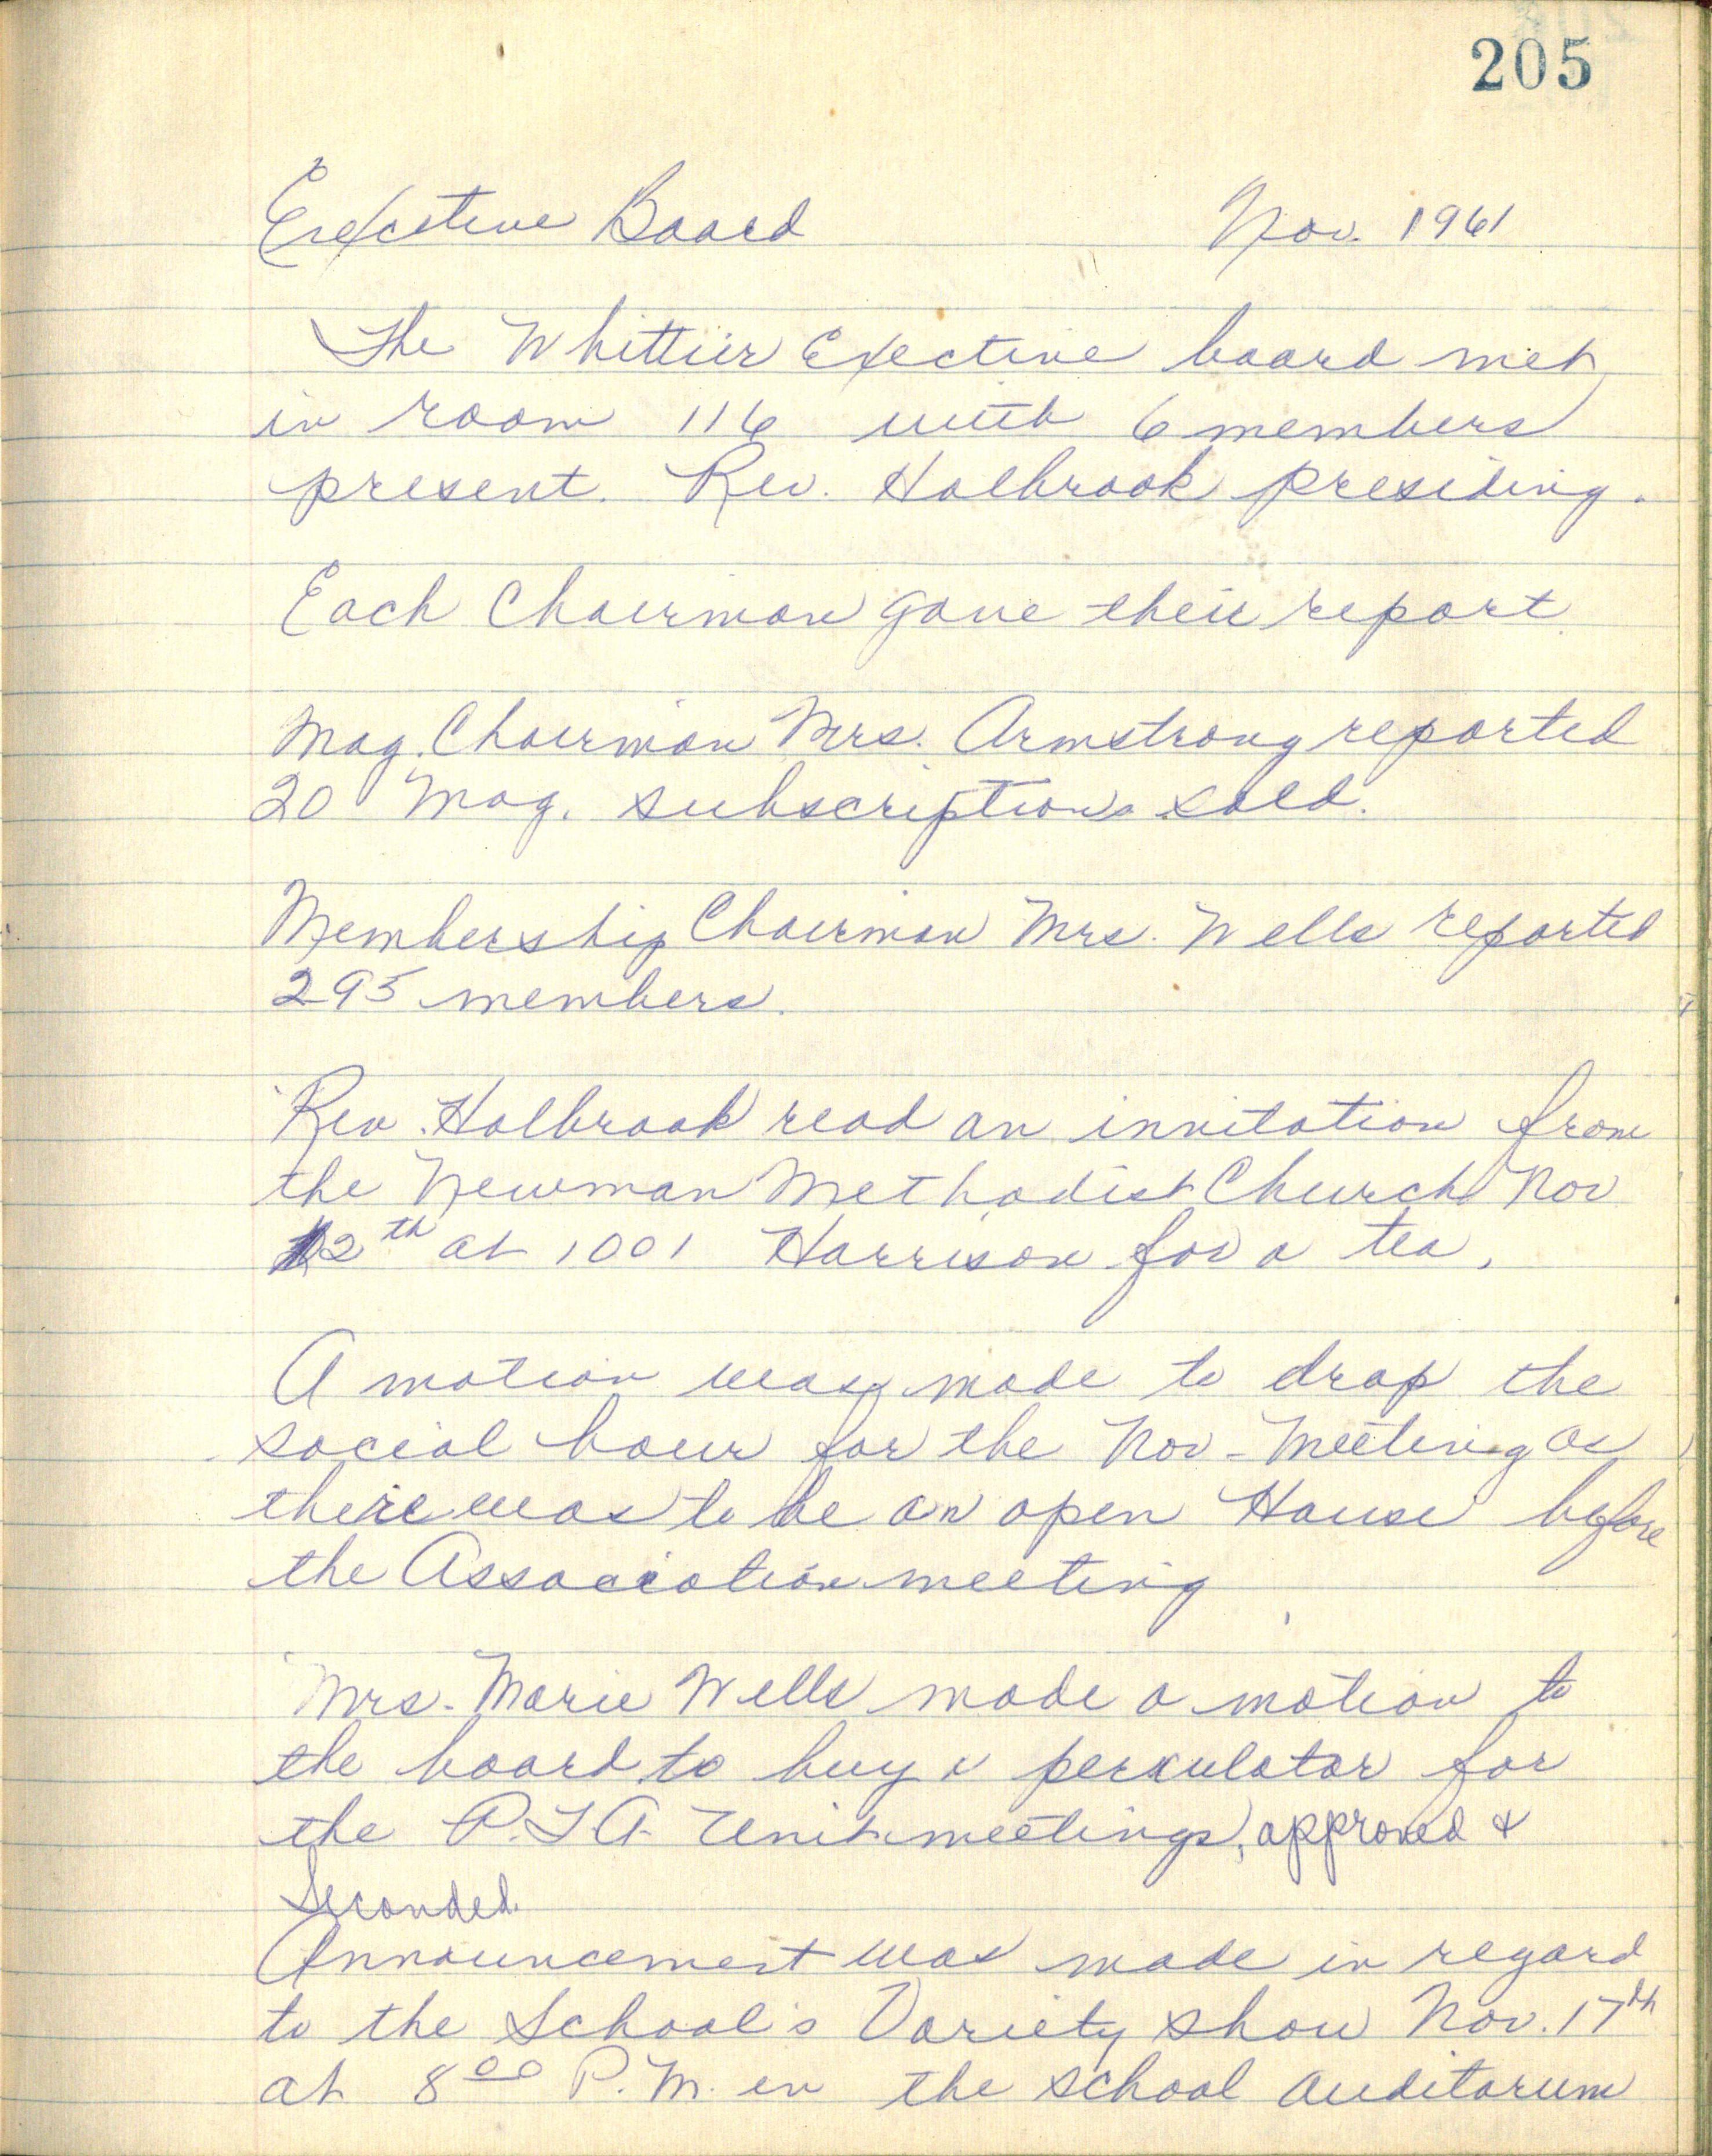 205
Exective Board Nov. 1961
The Whittier Exective board met
in room 116 with 6 members
present. Rev. Holbrook presiding.
Each Chairman gave their report.
Mag. Chairman Mrs. Armstrong reported
20 Mag. subscriptions sold.
Membership Chairman Mrs. Wells reported
295 members.
Rev. Holbrook read an invitation from
the Newman Methodist Church Nov
12th at 1001 Harrison for a tea.
A motion was made to drop the
social hour for the Nov - Meeting as
there was to be an open House before
the Association meeting
Mrs. Marie Wells made a motion to
the board to buy a perkulator for
the P.T.A. Unit meetings, approved &
Seconded.
Announcement was made in regard
to the School's Variety show Nov. 17th
at 8 00 P.M. in the school auditorum